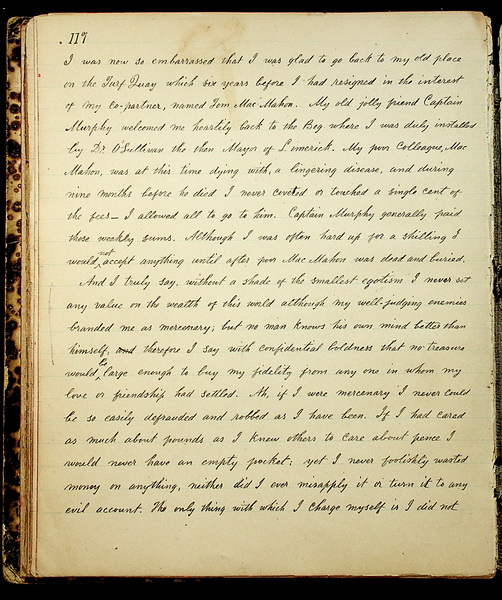 117
I was now so embarrassed that I was glad to go back to my old place
on the Turf Quay which six years before I had resigned in the interest
of my co-partner, named Tom Mac Mahon. My old jolly friend Captain
Murphy welcomed me heartily back to the Beg where I was duly installed
by Dr. O'Sullivan the then Mayor of Limerick. My poor Colleague, Mac
Mahon, was at this time dying with, a lingering disease, and during
nine months before he died I never coveted or touched a single cent of
the fees — I allowed all to go to him. Captain Murphy generally paid
those weekly sums. Although I was often hard up for a shilling I
would not accept anything until after poor Mac Mahon was dead and buried.
And I truly say, without a shade of the smallest egotism I never set
any value on the wealth of this world although my well-judging enemies
branded me as mercenary; but no man knows his own mind better than
himself, and therefore I say with confidential boldness that no treasure
would be large enough to buy my fidelity from any one in whom my
love or friendship had settled. Ah, if I were mercenary I never could
be so easily defrauded and robbed as I have been. If I had cared
as much about pounds as I knew others to care about pence I
would never have an empty pocket; yet I never foolishly wasted
money on anything, neither did I ever misapply it or turn it to any
evil account. The only thing with which I charge myself is I did not